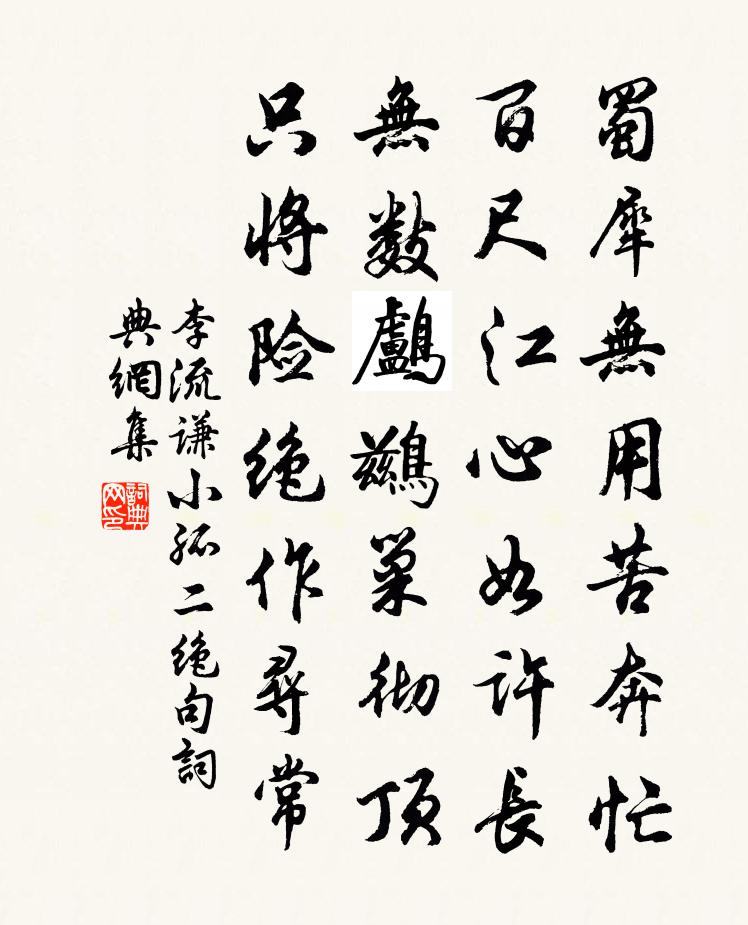 蜀犀無用苦奔忙
百尺江心如許長
無數鸕鷀巢彻頂
只将险绝作尋常
李流谦小孤二绝句詞
典網集
詞典网印